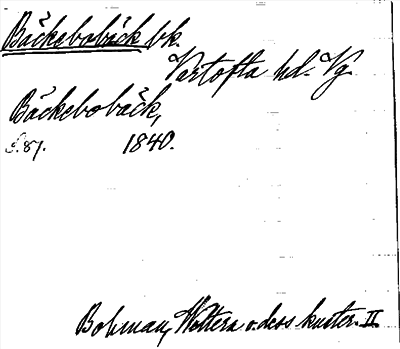 Bäckebobäck bk.
Vartofta hd. Vg.
Bäckebobäck,
S. 87. 1840.
Bohman, Wettern o. dess kuster. II.